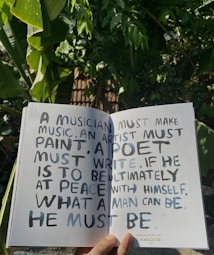 A MUSICIAN MUST MAKE
MUSIC, AN ARTIST MUST
PAINT, A POET
MUST WRITE, IF HE
IS TO BE ULTIMATELY
AT PEACE WITH HIMSELF.
WHAT A MAN CAN BE,
HE MUST BE.